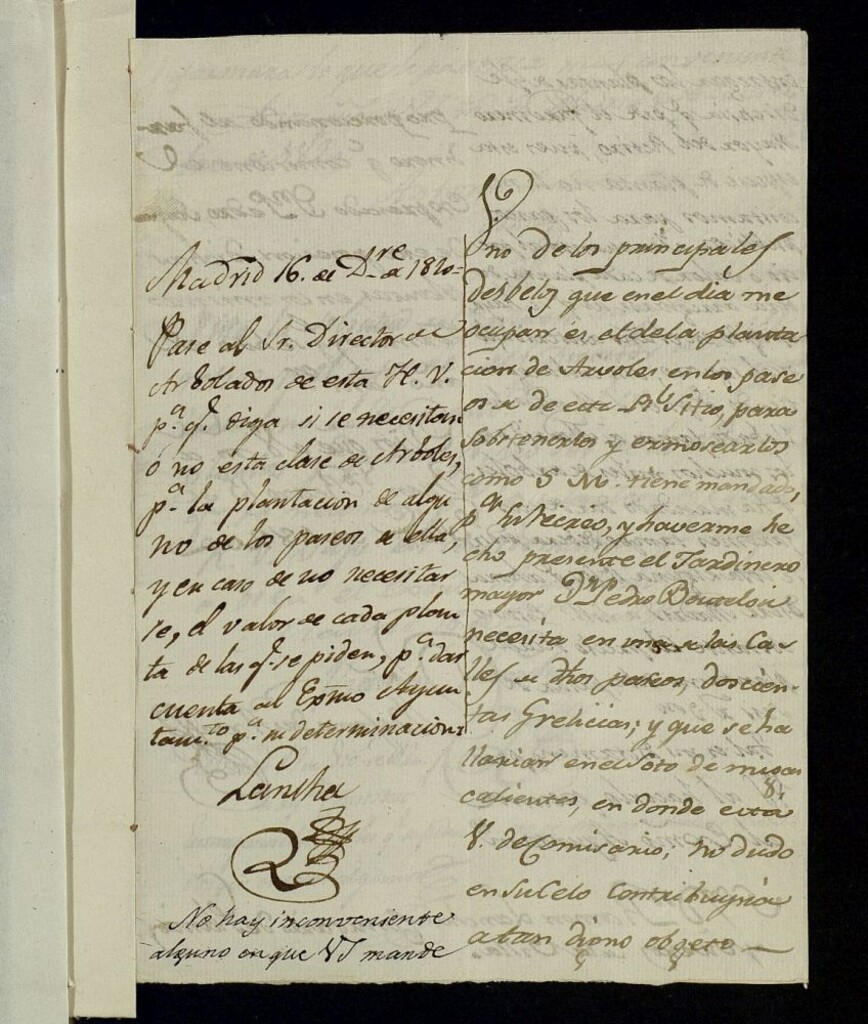 Madrid 16. de D.re de 1810=
Pase al Sr. Director de
Arbolados de esta H. V.
p.a q.e diga si se necesitan
ó no esta clase de Arboles,
p.a la plantacion de algu
no de los paseos de ella,
y en caso de no necesitar
se, el valor de cada plan
ta de las q.e se piden, p.a dar
cuenta al Exmo Ayun
tam.to p.a su determinacion
Lancha
No hay inconveniente
alguno en que VS mande
Uno de los principales
desbelos que en el dia me
ocupan es el de la planta
cion de Arvoles en los pase
os de este Rl. Sitio, para
sobstenerlos y ermosearlos
como S M. tiene mandado,
p.a su recreo, y haverme he
cho presente el Jardinero
mayor Dn. Pedro Boutelou
necesita en una de las Ca-
lles de dhos paseos, doscien-
tas Grelicias; y que se ha
llarian en el Soto de migas
calientes, en donde esta
V.S. de Comisario; no dudo
en su Celo Contribuyria
a tan digno obgeto —